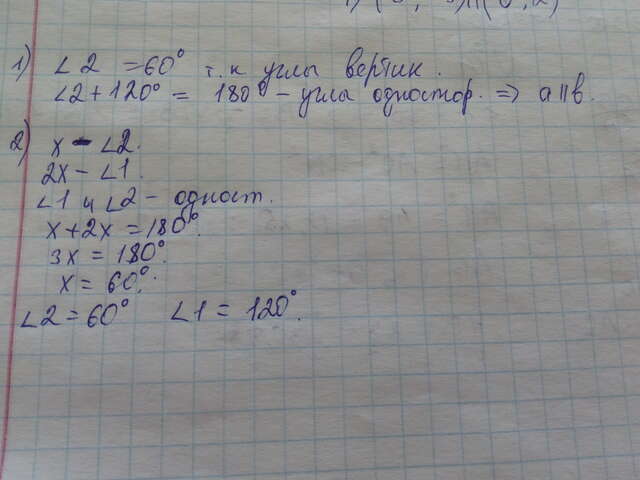 1) ∠2 = 60° т.к углы вертик.
∠2 + 120° = 180° - углы одностор. ⇒ a || в.
2) x - ∠2.
2x - ∠1.
∠1 и ∠2 - одност.
x + 2x = 180°.
3x = 180°.
x = 60°.
∠2 = 60° ∠1 = 120°.